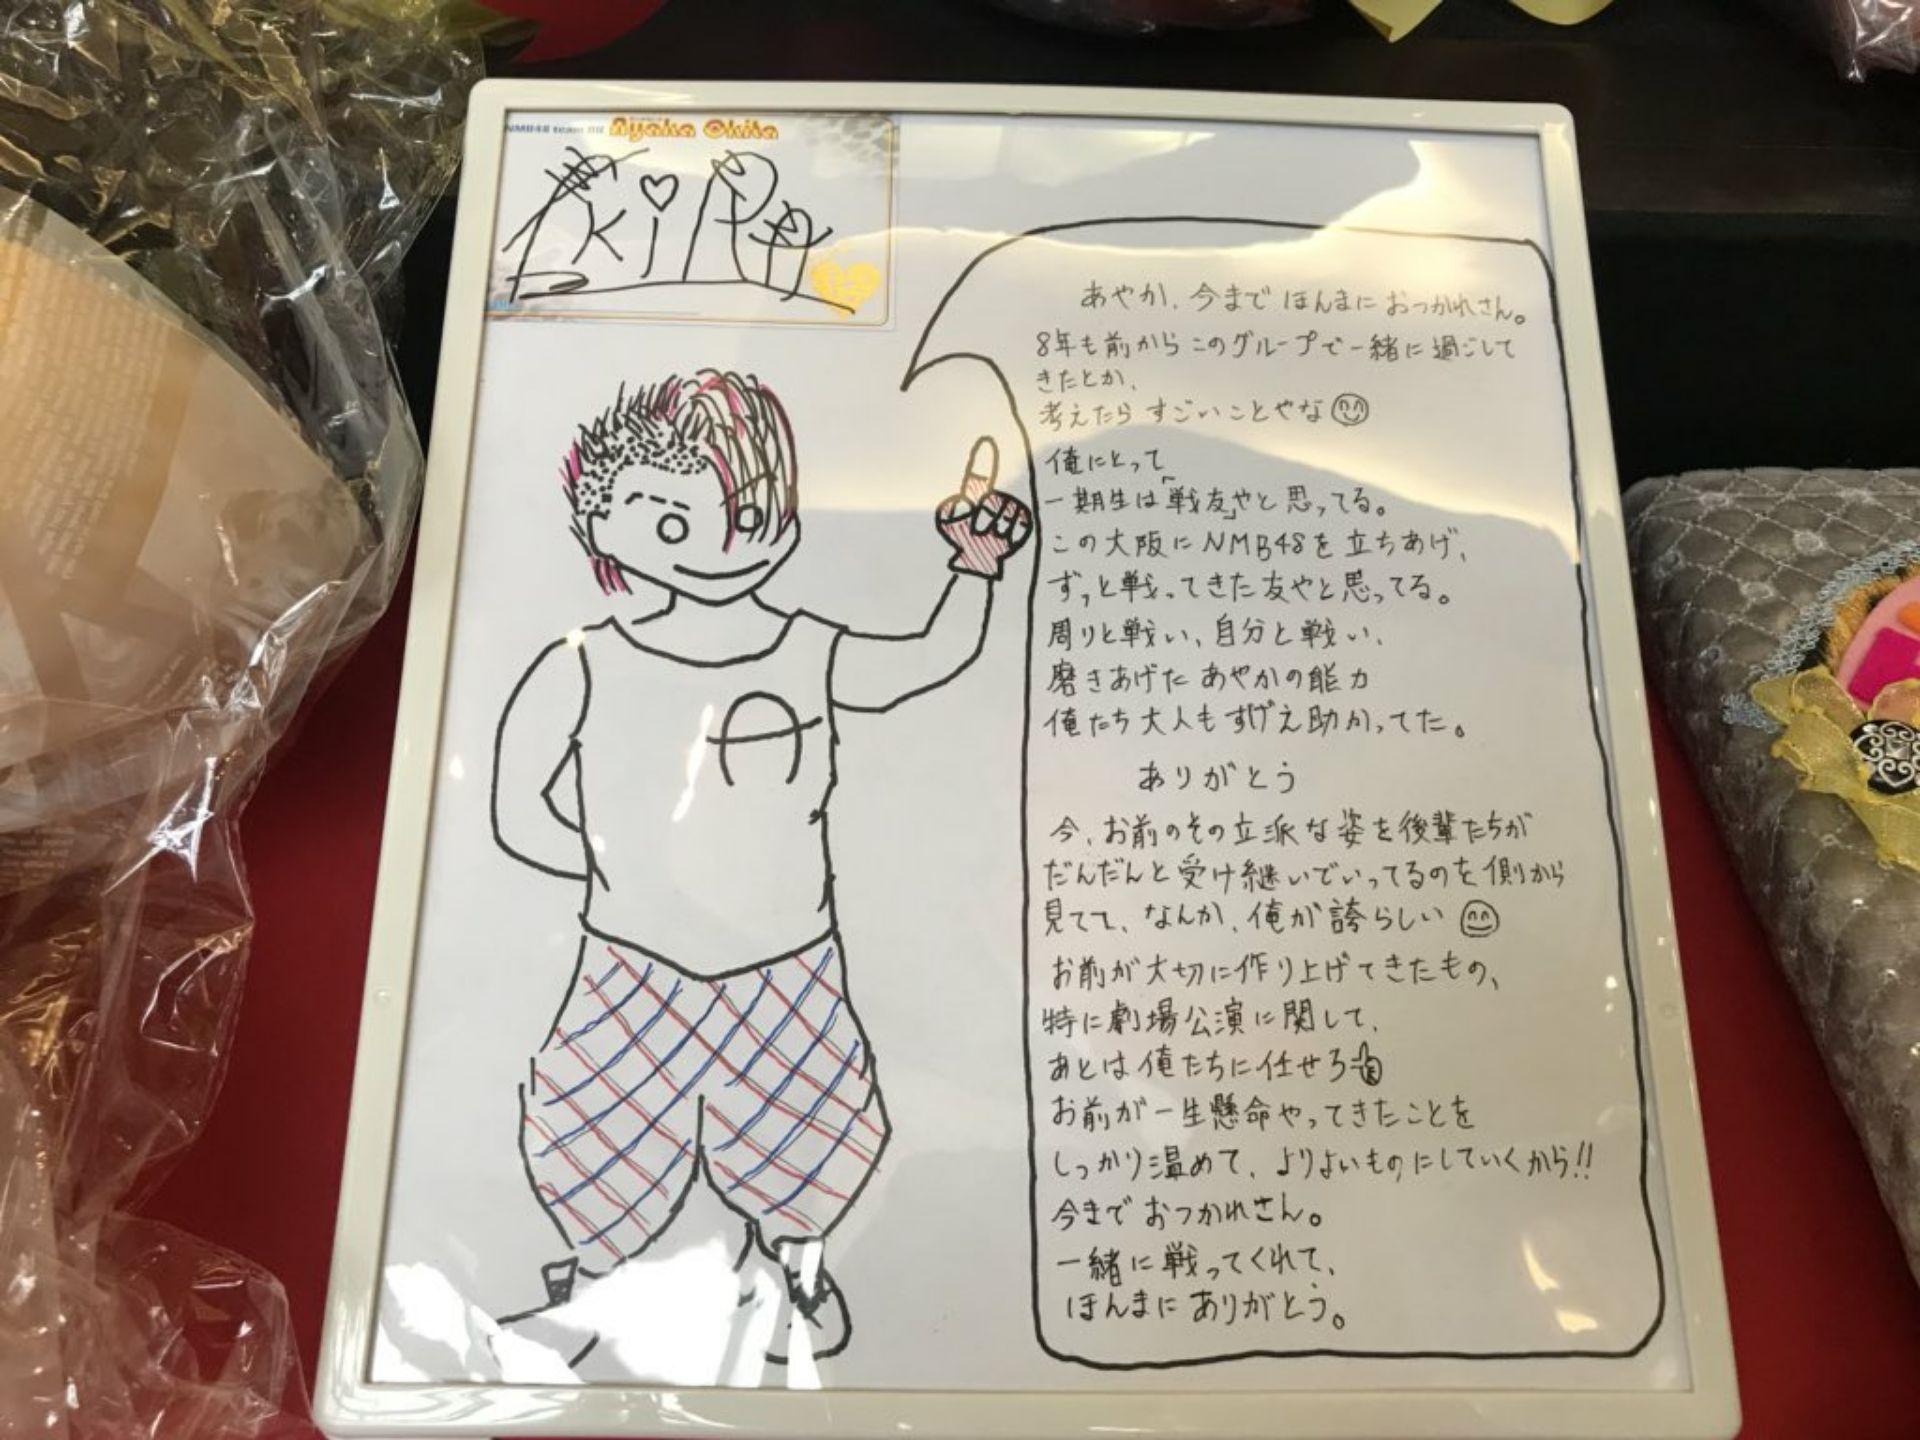 NMB48 team BII Ayaka Okita
あやか、今まで ほんまに おつかれさん。
8年も前からこのグループで一緒に過ごして
きたとか、
考えたら すごいことやな
俺にとって
一期生は「戦友」やと思ってる。
この大阪にNMB48を立ちあげ、
ずっと戦ってきた友やと思ってる。
周りと戦い、自分と戦い、
磨きあげた あやかの能力
俺たち大人もすげえ助かってた。
ありがとう
今、お前のその立派な姿を後輩たちが
だんだんと受け継いでいってるのを側から
見てて、なんか、俺が誇らしい
お前が大切に作り上げてきたもの、
特に劇場公演に関して、
あとは俺たちに任せろ
お前が一生懸命やってきたことを
しっかり温めて、よりよいものにしていくから!!
今まで おつかれさん。
一緒に戦ってくれて、
ほんまにありがとう。
A